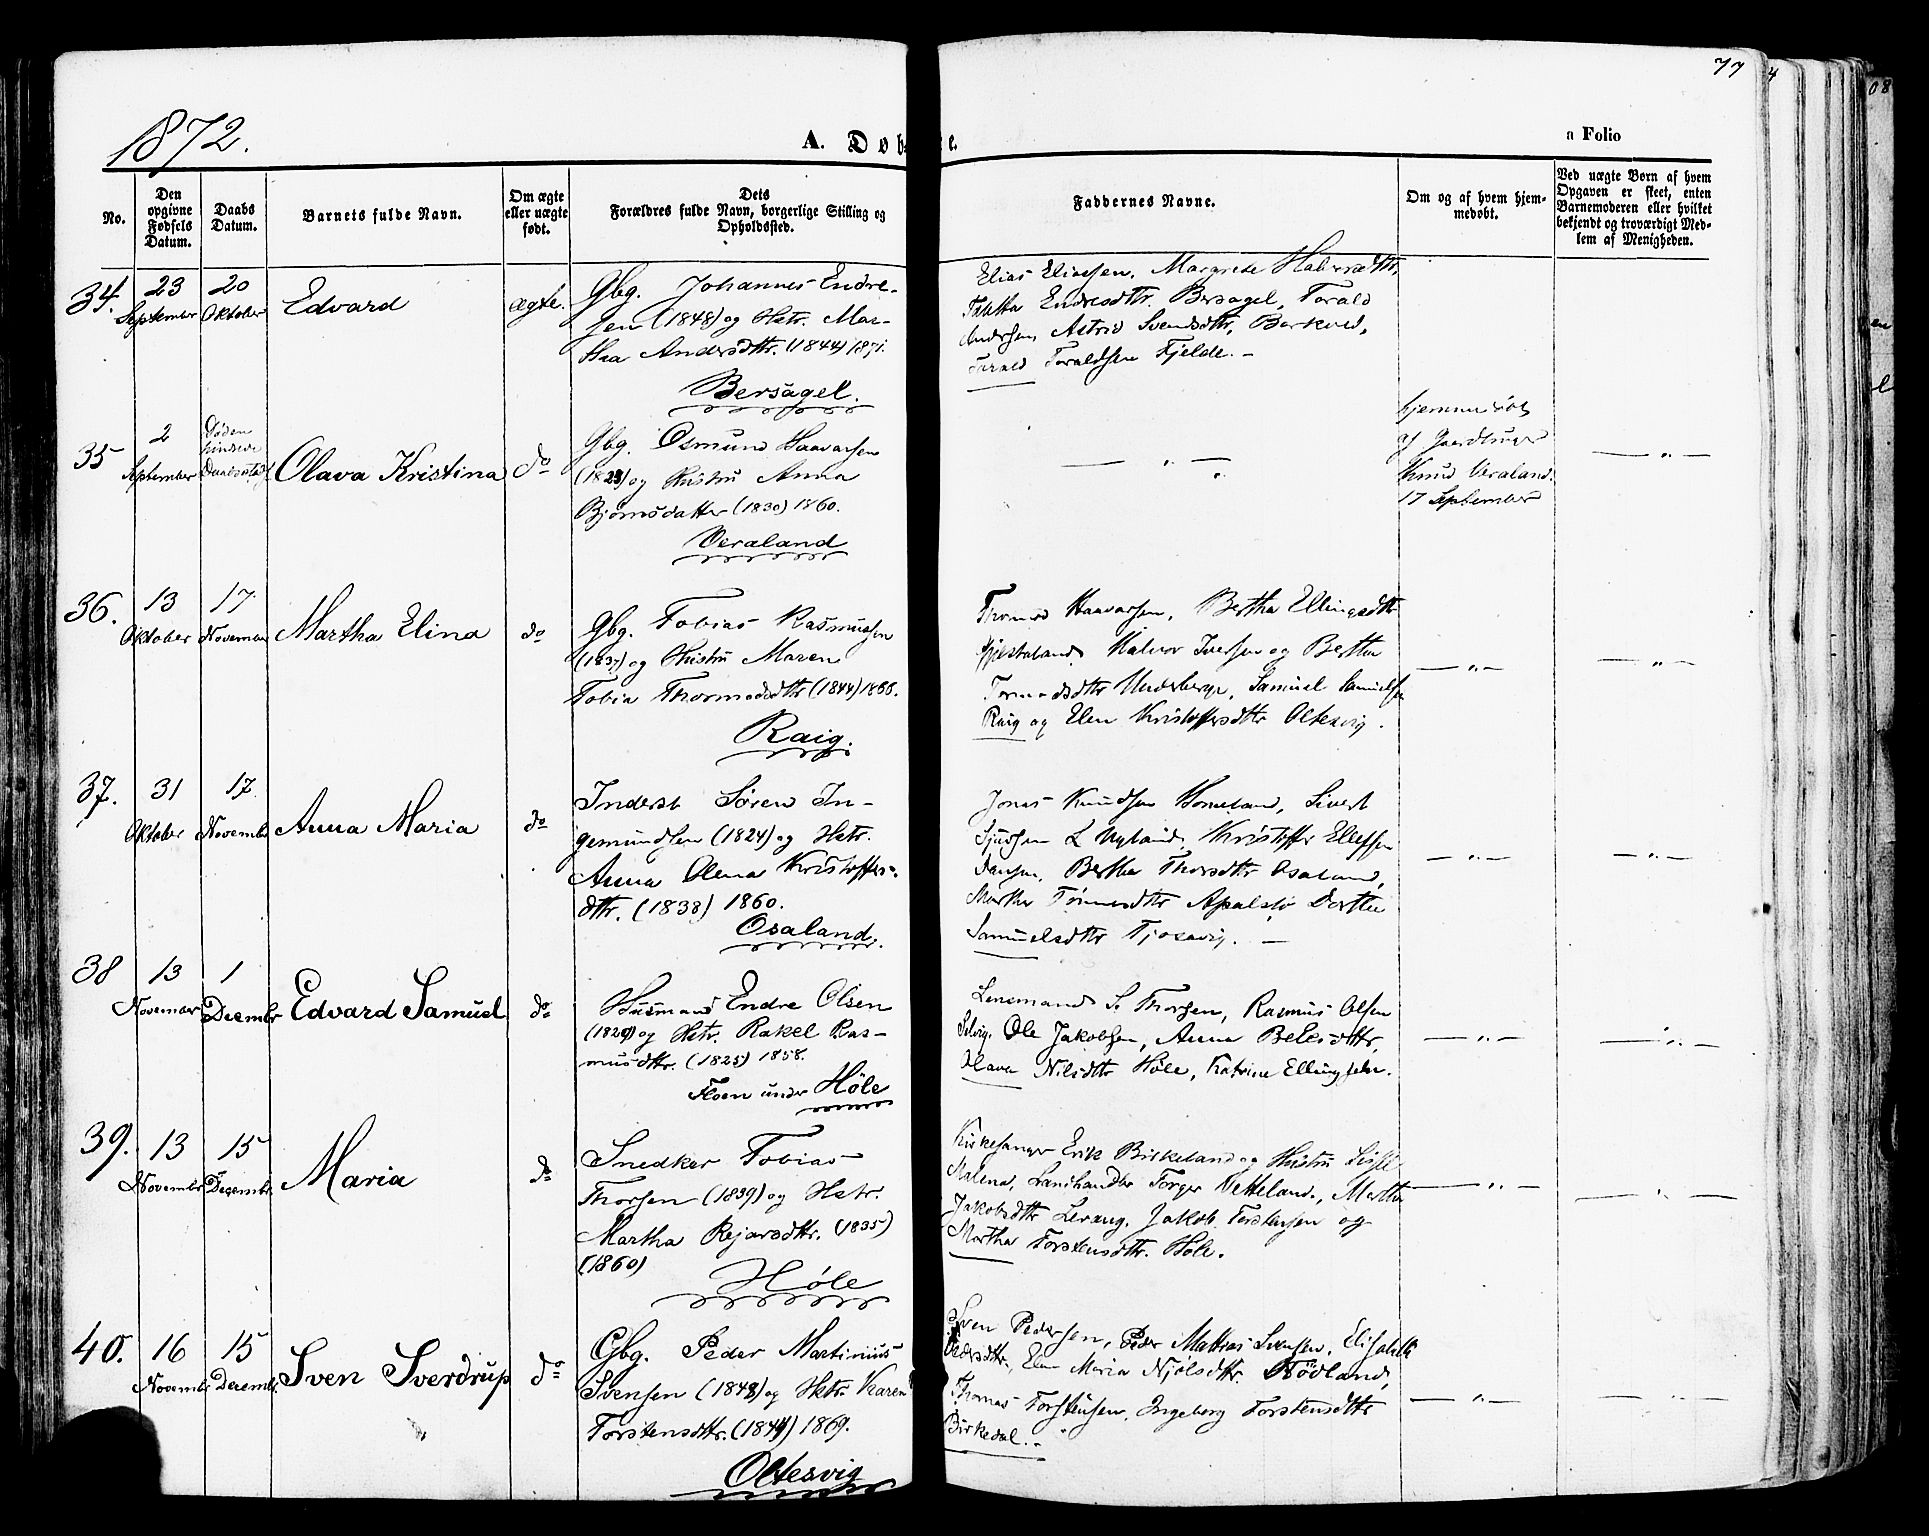 77
1872.
A. Døb e.
n Folio
No.
Den opgivne Fødsels Datum.
Daabs Datum.
Barnets fulde Navn.
Om ægte eller uægte født.
Dets Forældres fulde Navn, borgerlige Stilling og Opholdssted.
Faddernes Navne.
Om og af hvem hjemmedøbt.
Ved uægte Børn af hvem Opgaven er skeet, enten Barnemoderen eller hvilket bekjendt og troværdigt Medlem af Menigheden.
34. 23 September 20 Oktober Edvard ægte.
Gbg. Johannes Endre-
sen (1848) og Hstr. Mar-
tha Andersdttr. (1844) 1871.
Bersagel.
Elias Eliassen, Margrete
Endresdttr. Bersagel, Torald
Andersen, Astrid Svendsdttr.
Toraldsen Fjelde. -
35 2 September Døden hindrede Olava Kristina do
Gbg. Osmund Haavarsen
og Hustru Anna
Bjørnsdatter (1830) 1860.
Veraland
— " —
hjemmedøbt
af Gaardbruger
Knud Veraland.
17 September
— " —
36. 13 Oktober 17 November Martha Elina do
Gbg. Tobias Rasmussen
(1837) og Hustru Maren
Tobia Thormodsdttr (1844) 1866.
Raig.
Haavarsen, Bertha Ellingsdttr
Halvor Iversen og Berthe
Tormodsdttr Underberge, Samuel Samuelsen
Raig og Elen Kristoffersdttr Oltesvig.
— " —
— " —
37. 31 Oktober 17 November Anna Maria do
Inderst Søren In-
gemundsen (1824) og Hstr.
Anna Olena Kristoffers-
dttr. (1838) 1860.
Osaland.
Jonas Knudsen Homeland, Sivert
Kristoffer Ellefsen
Bertha Thorsdttr Osaland,
Martha Dorthe
Samuelsdttr Tjosavig. —
— " —
— " —
38 13 November 1 Decembr Edvard Samuel do
Husmand Endre Olsen
(1829) og Hstr. Rakel Ras-
musdttr. (1825) 1858.
Floen under Høle
Lensmand S. Thorsen, Rasmus Olsen
Selvig. Ole Jakobsen, Anna
Olava Nilsdttr Høle, Katrine
— " —
— " —
39. 13 Novembr 15 Decembr Maria do
Snedker Tobias
Thorsen (1839) og Hstr.
Martha Rejarsdttr. (1835)
(1860)
Høle
Kirkesanger Erik Birkeland og Hustru
Malena, Landhandler Torger Vetteland, Martha
Jakobsdttr Lerang. Jakob Torstensen og
Martha Torstensdttr. Høle.
— " —
— " —
40. 16 Novembr 15 Decembr Sven Sverdrup do
Gbg. Peder Martinius
Svensen (1848) og Hstr Karen
Torstensdttr. (1844) 1869.
Oltesvig
Sven Pedersen, Peder Mathias Svensen, Elisabeth
Pedersdttr., Elen Maria Njølsdttr. Nödland,
Thomas Torstensen, Ingeborg Torstensdttr
Birkedal. -
— " —
— " —